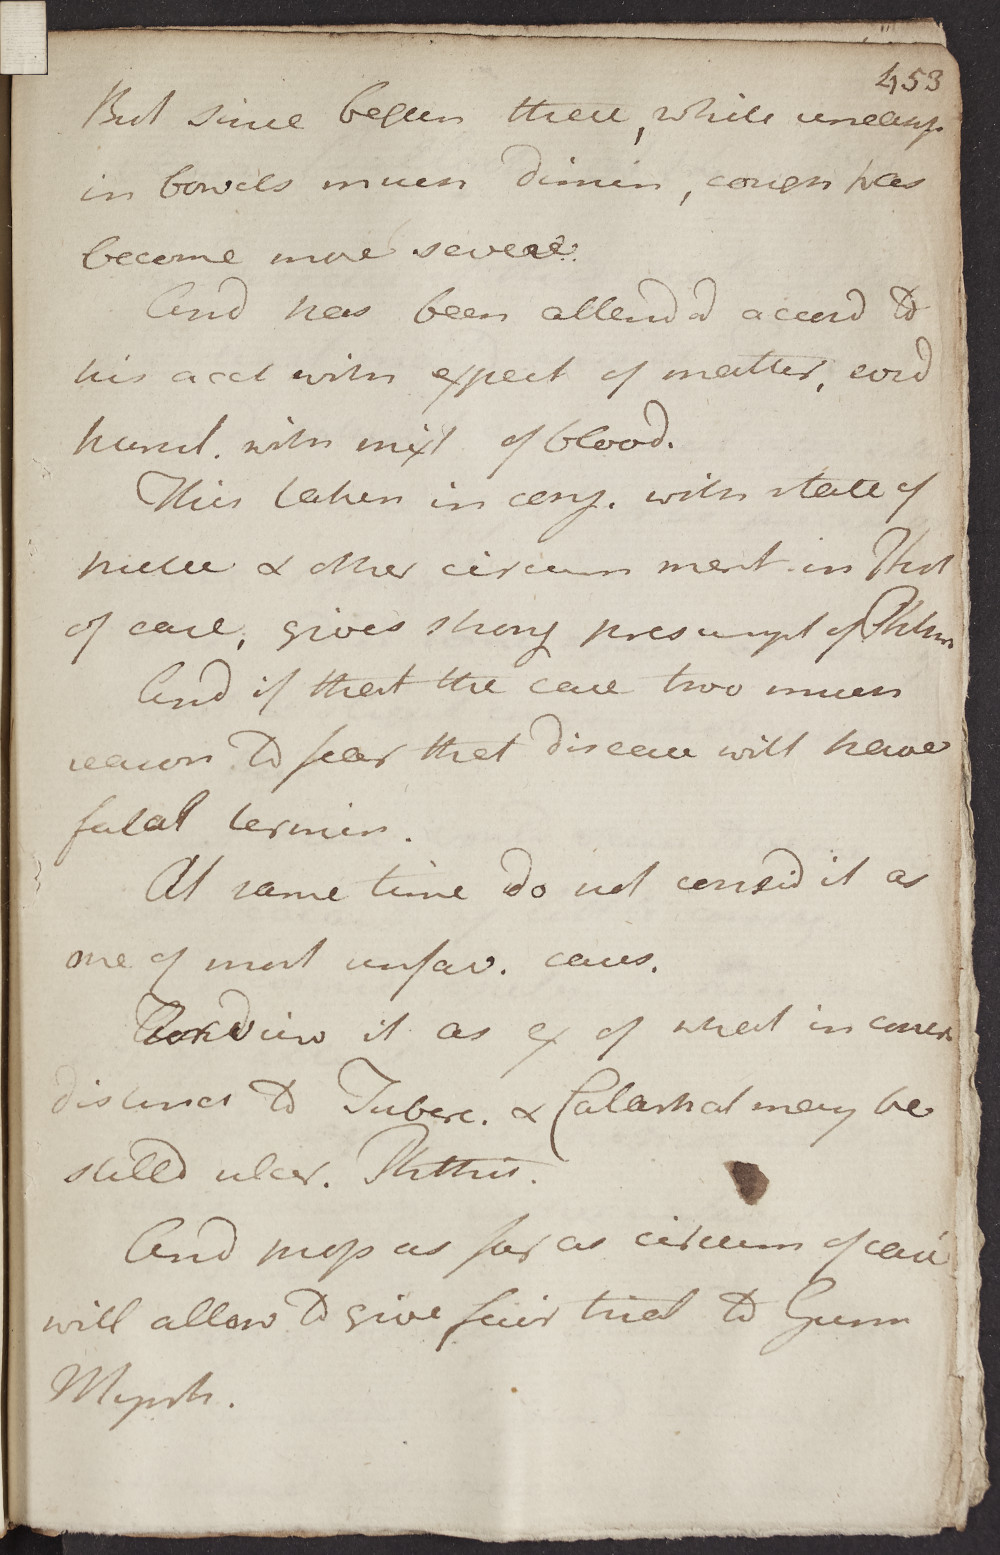 453
But since begun these, while uneasy
in bowels much dimin, cough has
become more severe.
And has been attend'd accord to
his acct with expect of matter, and
purul. with mixt of blood.
This taken in conj. with state of
pulse & other circum ment. in Hist
of case, gives strong presumpt of Phthis
And if that the case two much
reason to fear that disease will have
fatal termin.
At same time do not consid it as
one of most unfav. cases.
view it as ex of what in contra
distinct to Tuberc. & Catarrhal may be
stilld ulcer. Phthis.
And prop as far as circum of case
will allow to give fair trial to Gum
Myrrh.